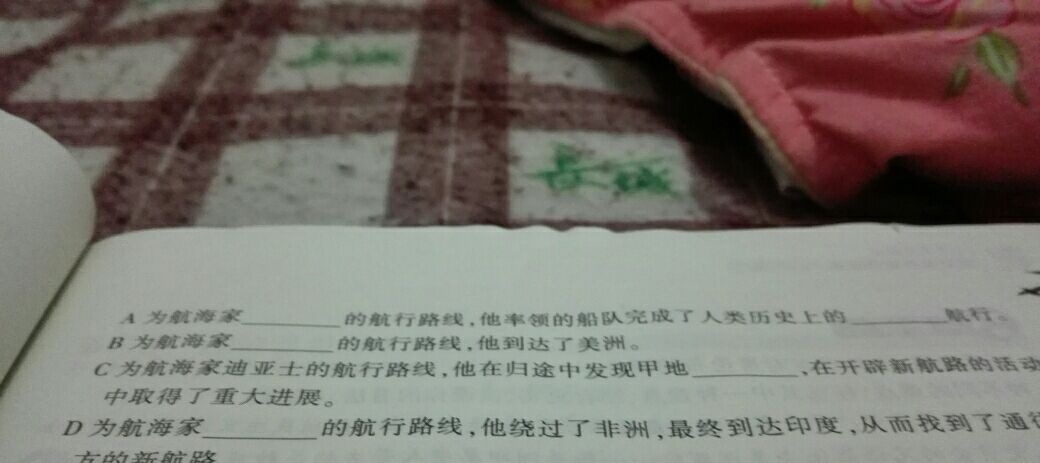 长城
长城
A 为航海家________的航行路线,他率领的船队完成了人类历史上的________航行。
B 为航海家________的航行路线,他到达了美洲。
C 为航海家迪亚士的航行路线,他在归途中发现甲地________,在开辟新航路的活动
中取得了重大进展。
D 为航海家________的航行路线,他绕过了非洲,最终到达印度,从而找到了通往
方的新航路